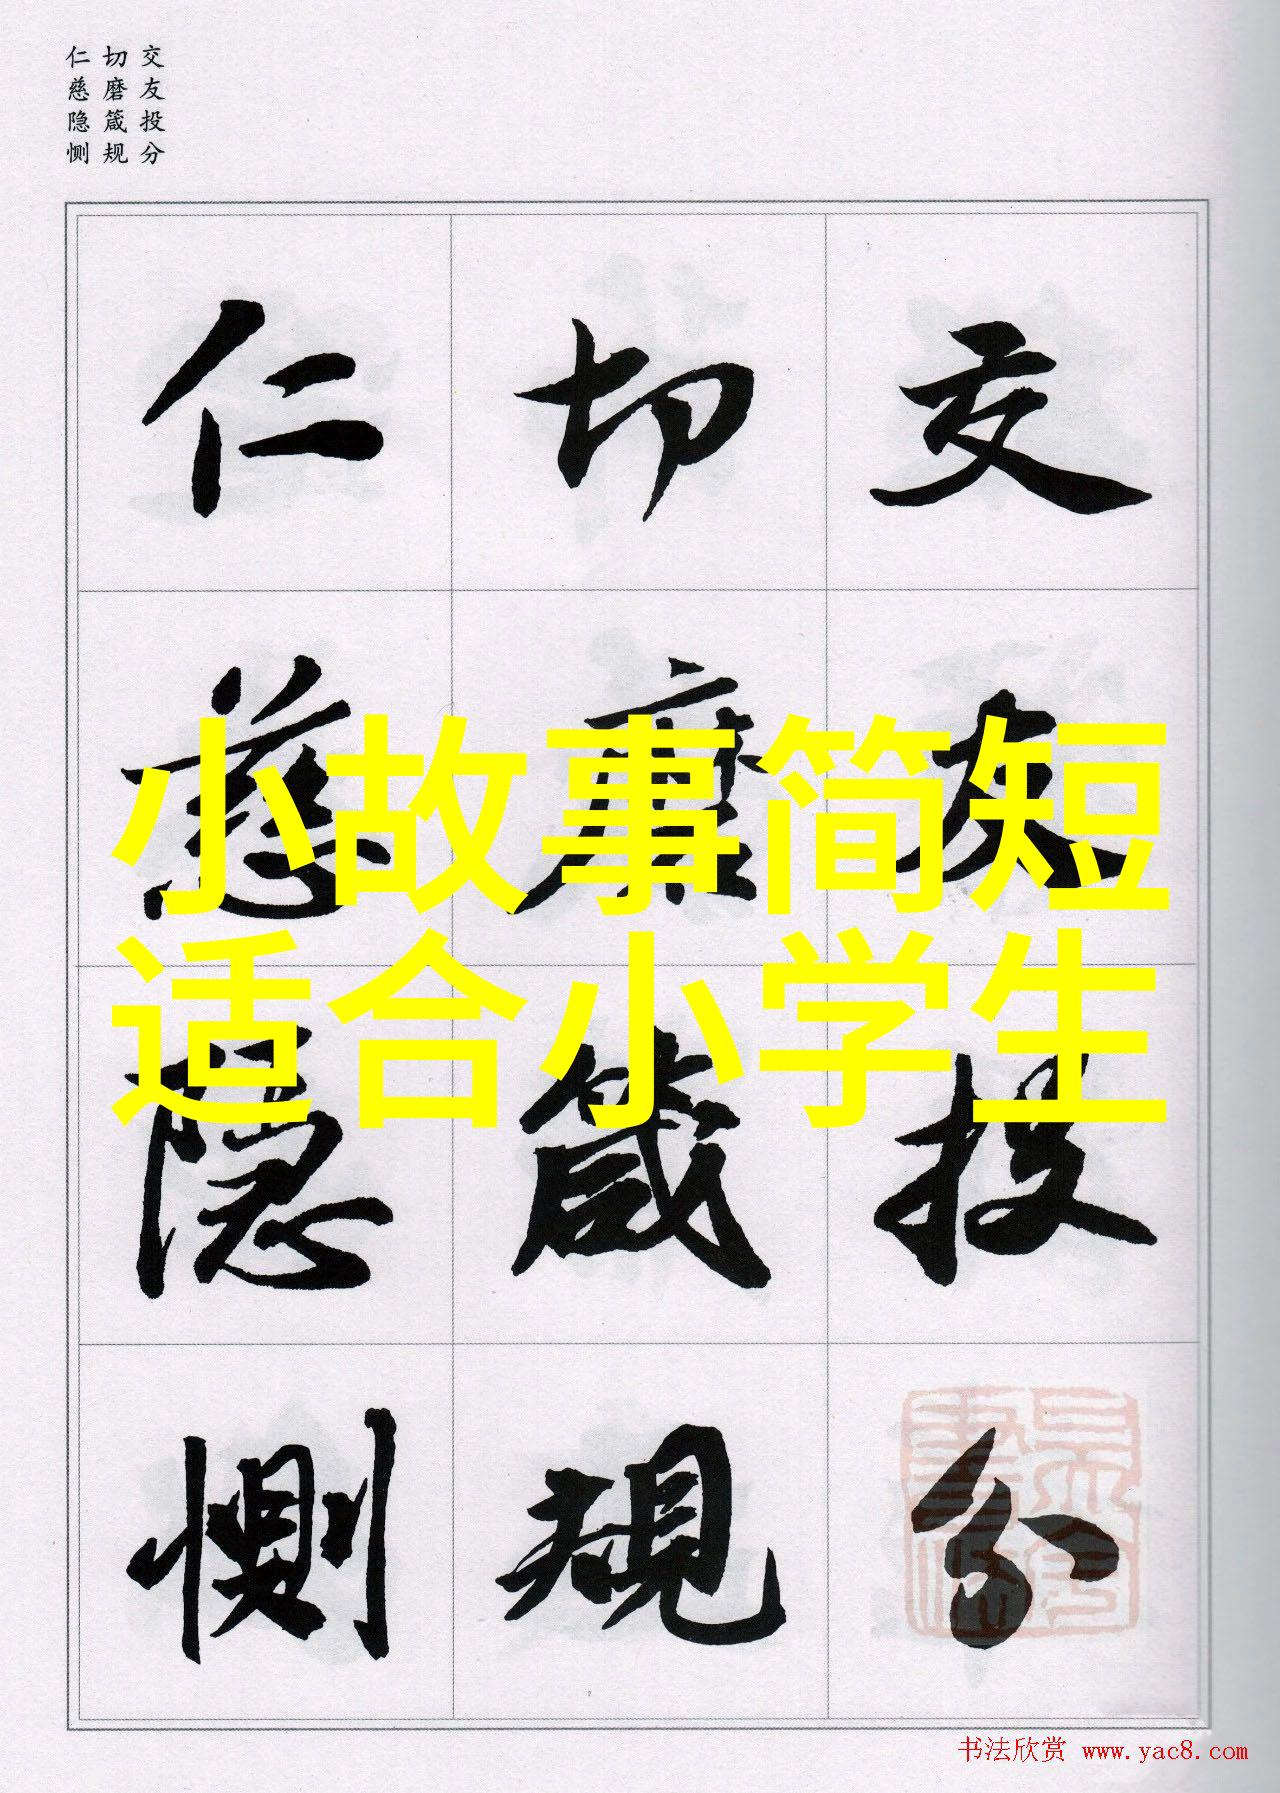 交友投分
切磨箴规
仁慈隐恻
小故事简短
适合小学生
交友投分
切磨箴規
仁慈隐恻
书法欣赏 www.yac8.com